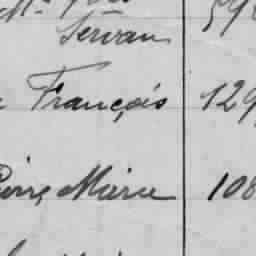 Servan
François 129
Pierre Marie 108